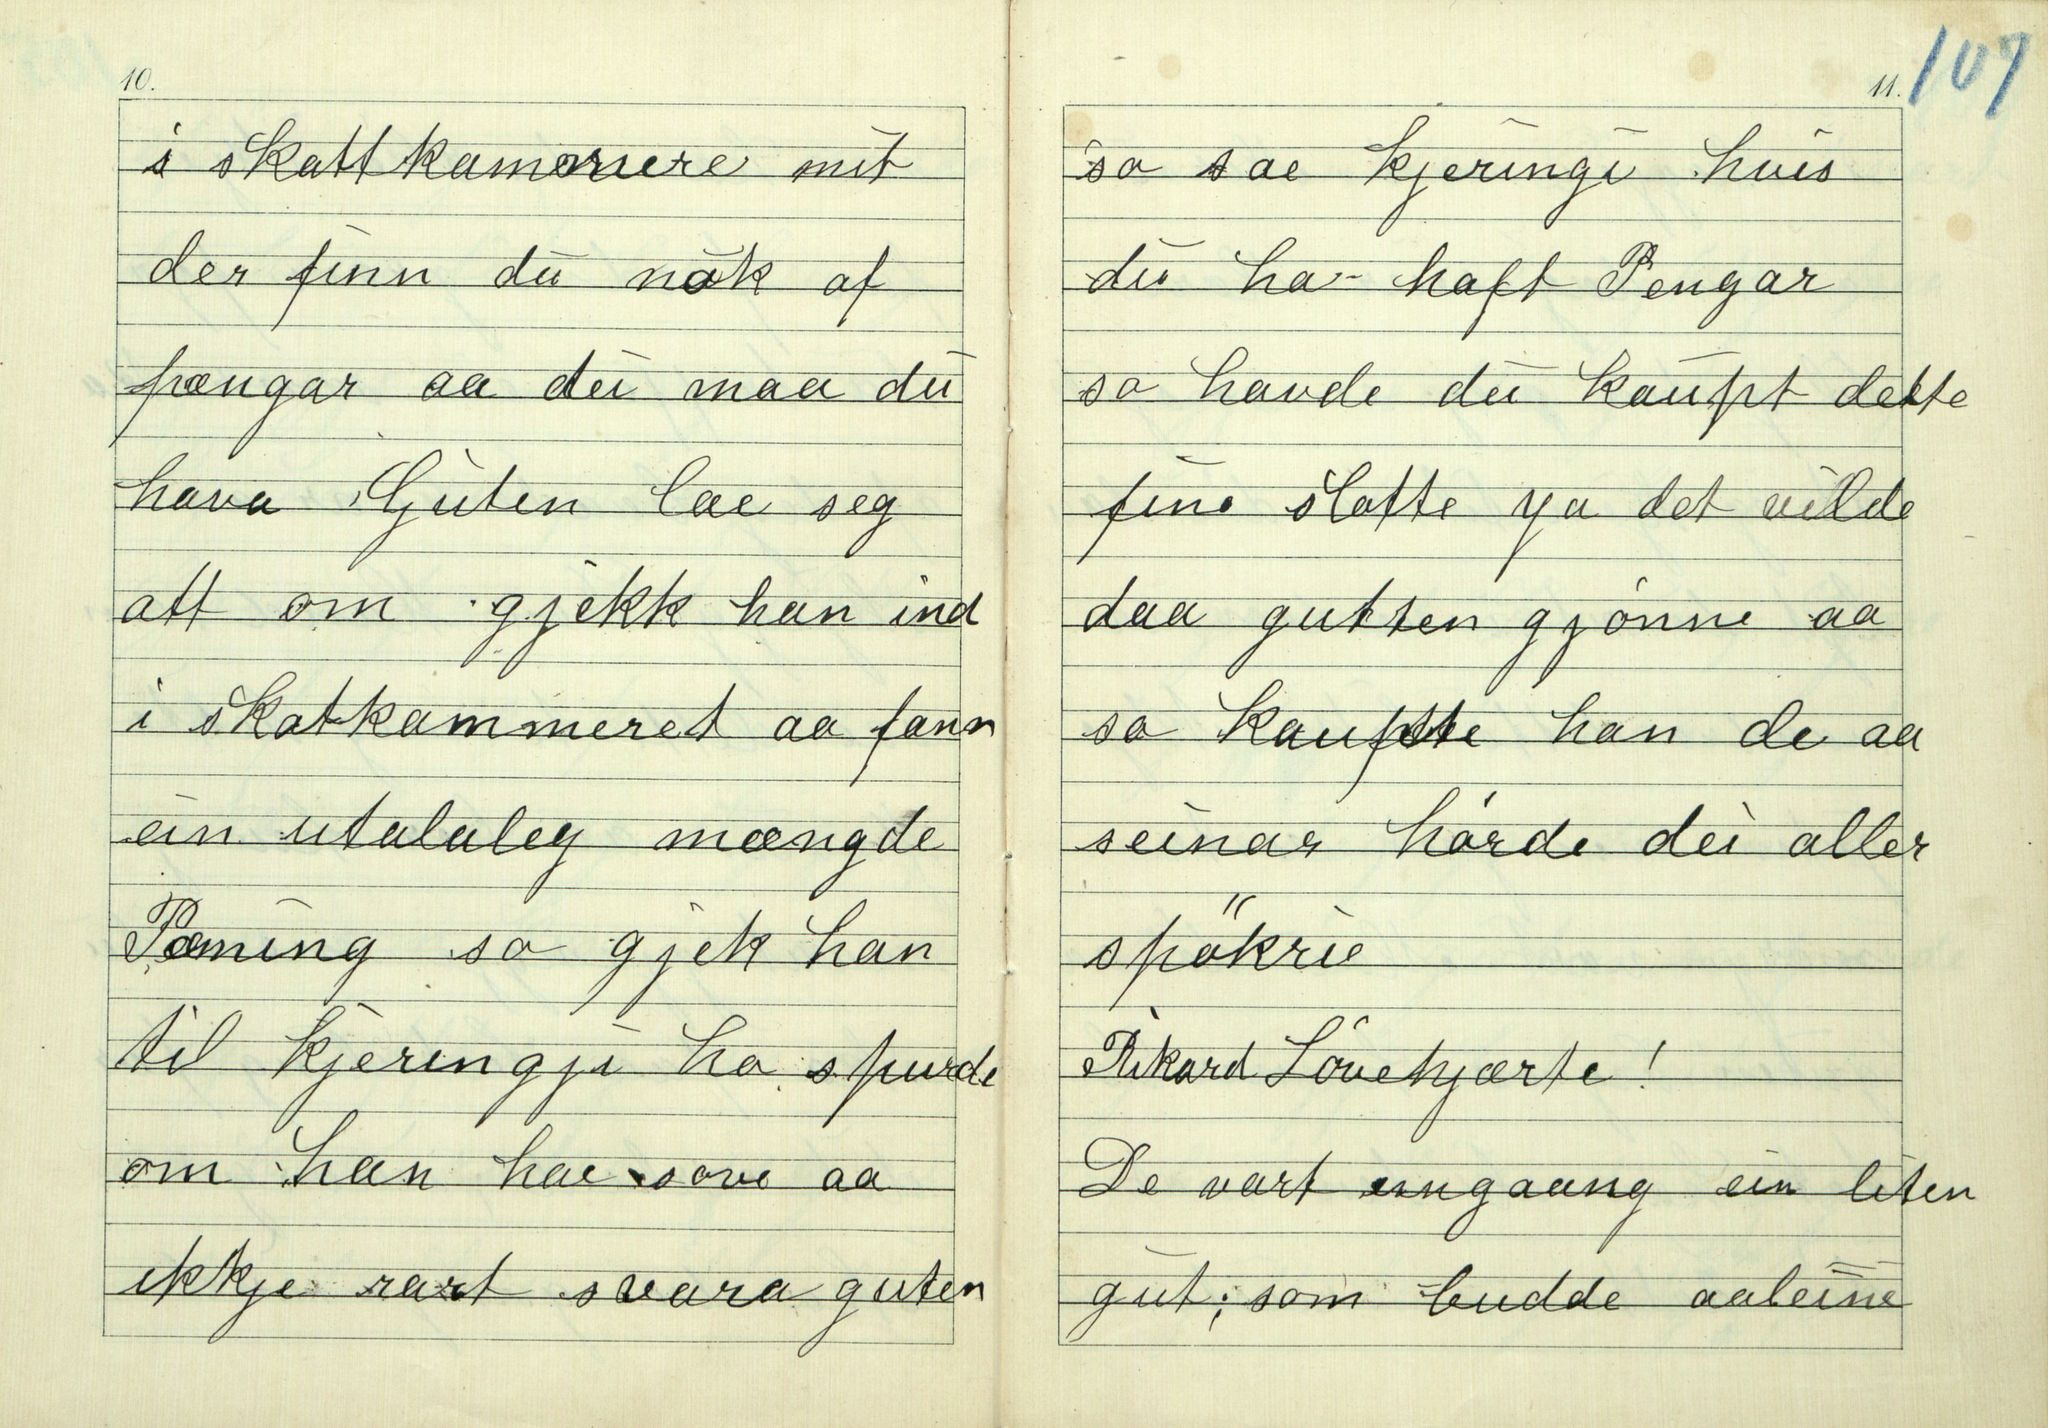 10.
i skattkammere mit
der finn du nok af
pængar aa dei maa du
hava Guten lae seg
att om gjekk han ind
i skatkammeret aa fann
ein utalaleg mængde
Pæning so gjek han
til kjeringji ho spurde
om han hae sove aa
ikkje rart svara guten
11. 107
so sae kjeringi huis
du ha haft Pengar
so havde du kaupt dette
fine slotte ya det vilde
daa gutten gjønne aa
so kaupte han de aa
seinar hørde dei aller
spökrie
Rikard Løvehjærte!
De vart eingaang ein liten
gut; som budde aaleine